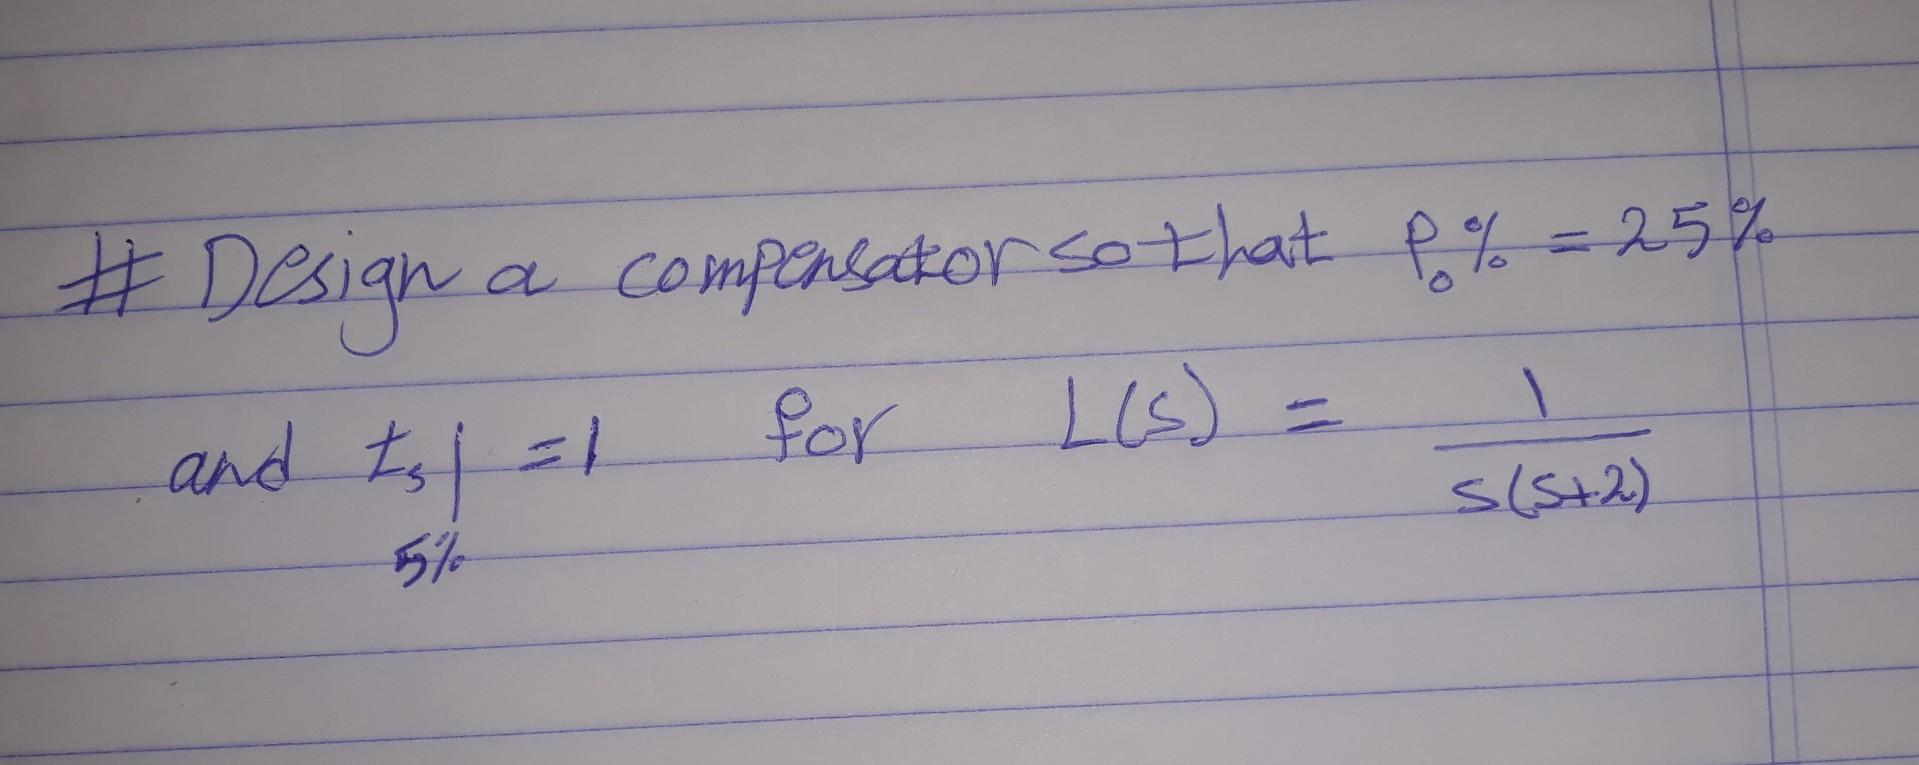 # Design a compensator so that P.% = 25%
and ts| = 1 for L(s) = 1
s(s+2)
5%